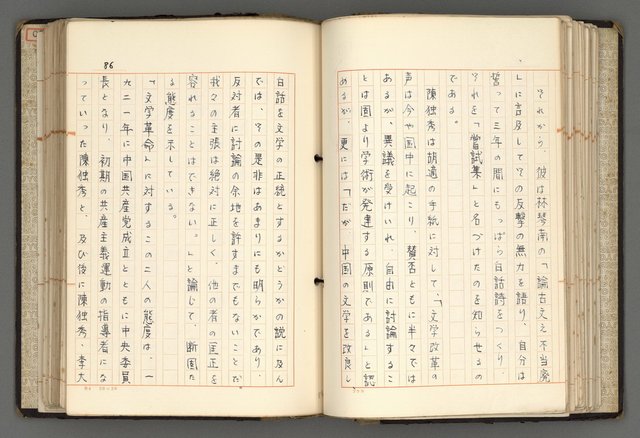 それから、彼は林琴南の「論古文之不当廃
」に言及してその反撃の無力を語り、自分は
誓って三年の間にもっぱら白話詩をつくり、
それを「嘗試集」と名づけたのを知らせるの
である。
陳独秀は胡適の手紙に対して、「文学改革の
声は今や国中に起こり、賛否ともに半々では
あるが、異議を受けいれ、自由に討論するこ
とは固より学術が発達する原則である」と認
めるが、更には「だが、中国の文学を改良し
86
白話を文学の正統とするかどうかの説に及ん
では、その是非はあまりにも明らかであり、
反対者に討論の余地を許すまでもないことだ
我々の主張は絶対に正しく、他の者の匡正を
容れることはできない。」と論じて、断固た
る態度を示している。
「文学革命」に対するこの二人の態度は、一
九二一年に中国共産党成立とともに中央委員
長となり、初期の共産主義運動の指導者にな
っていった陳独秀と、及び後に陳独秀・李大